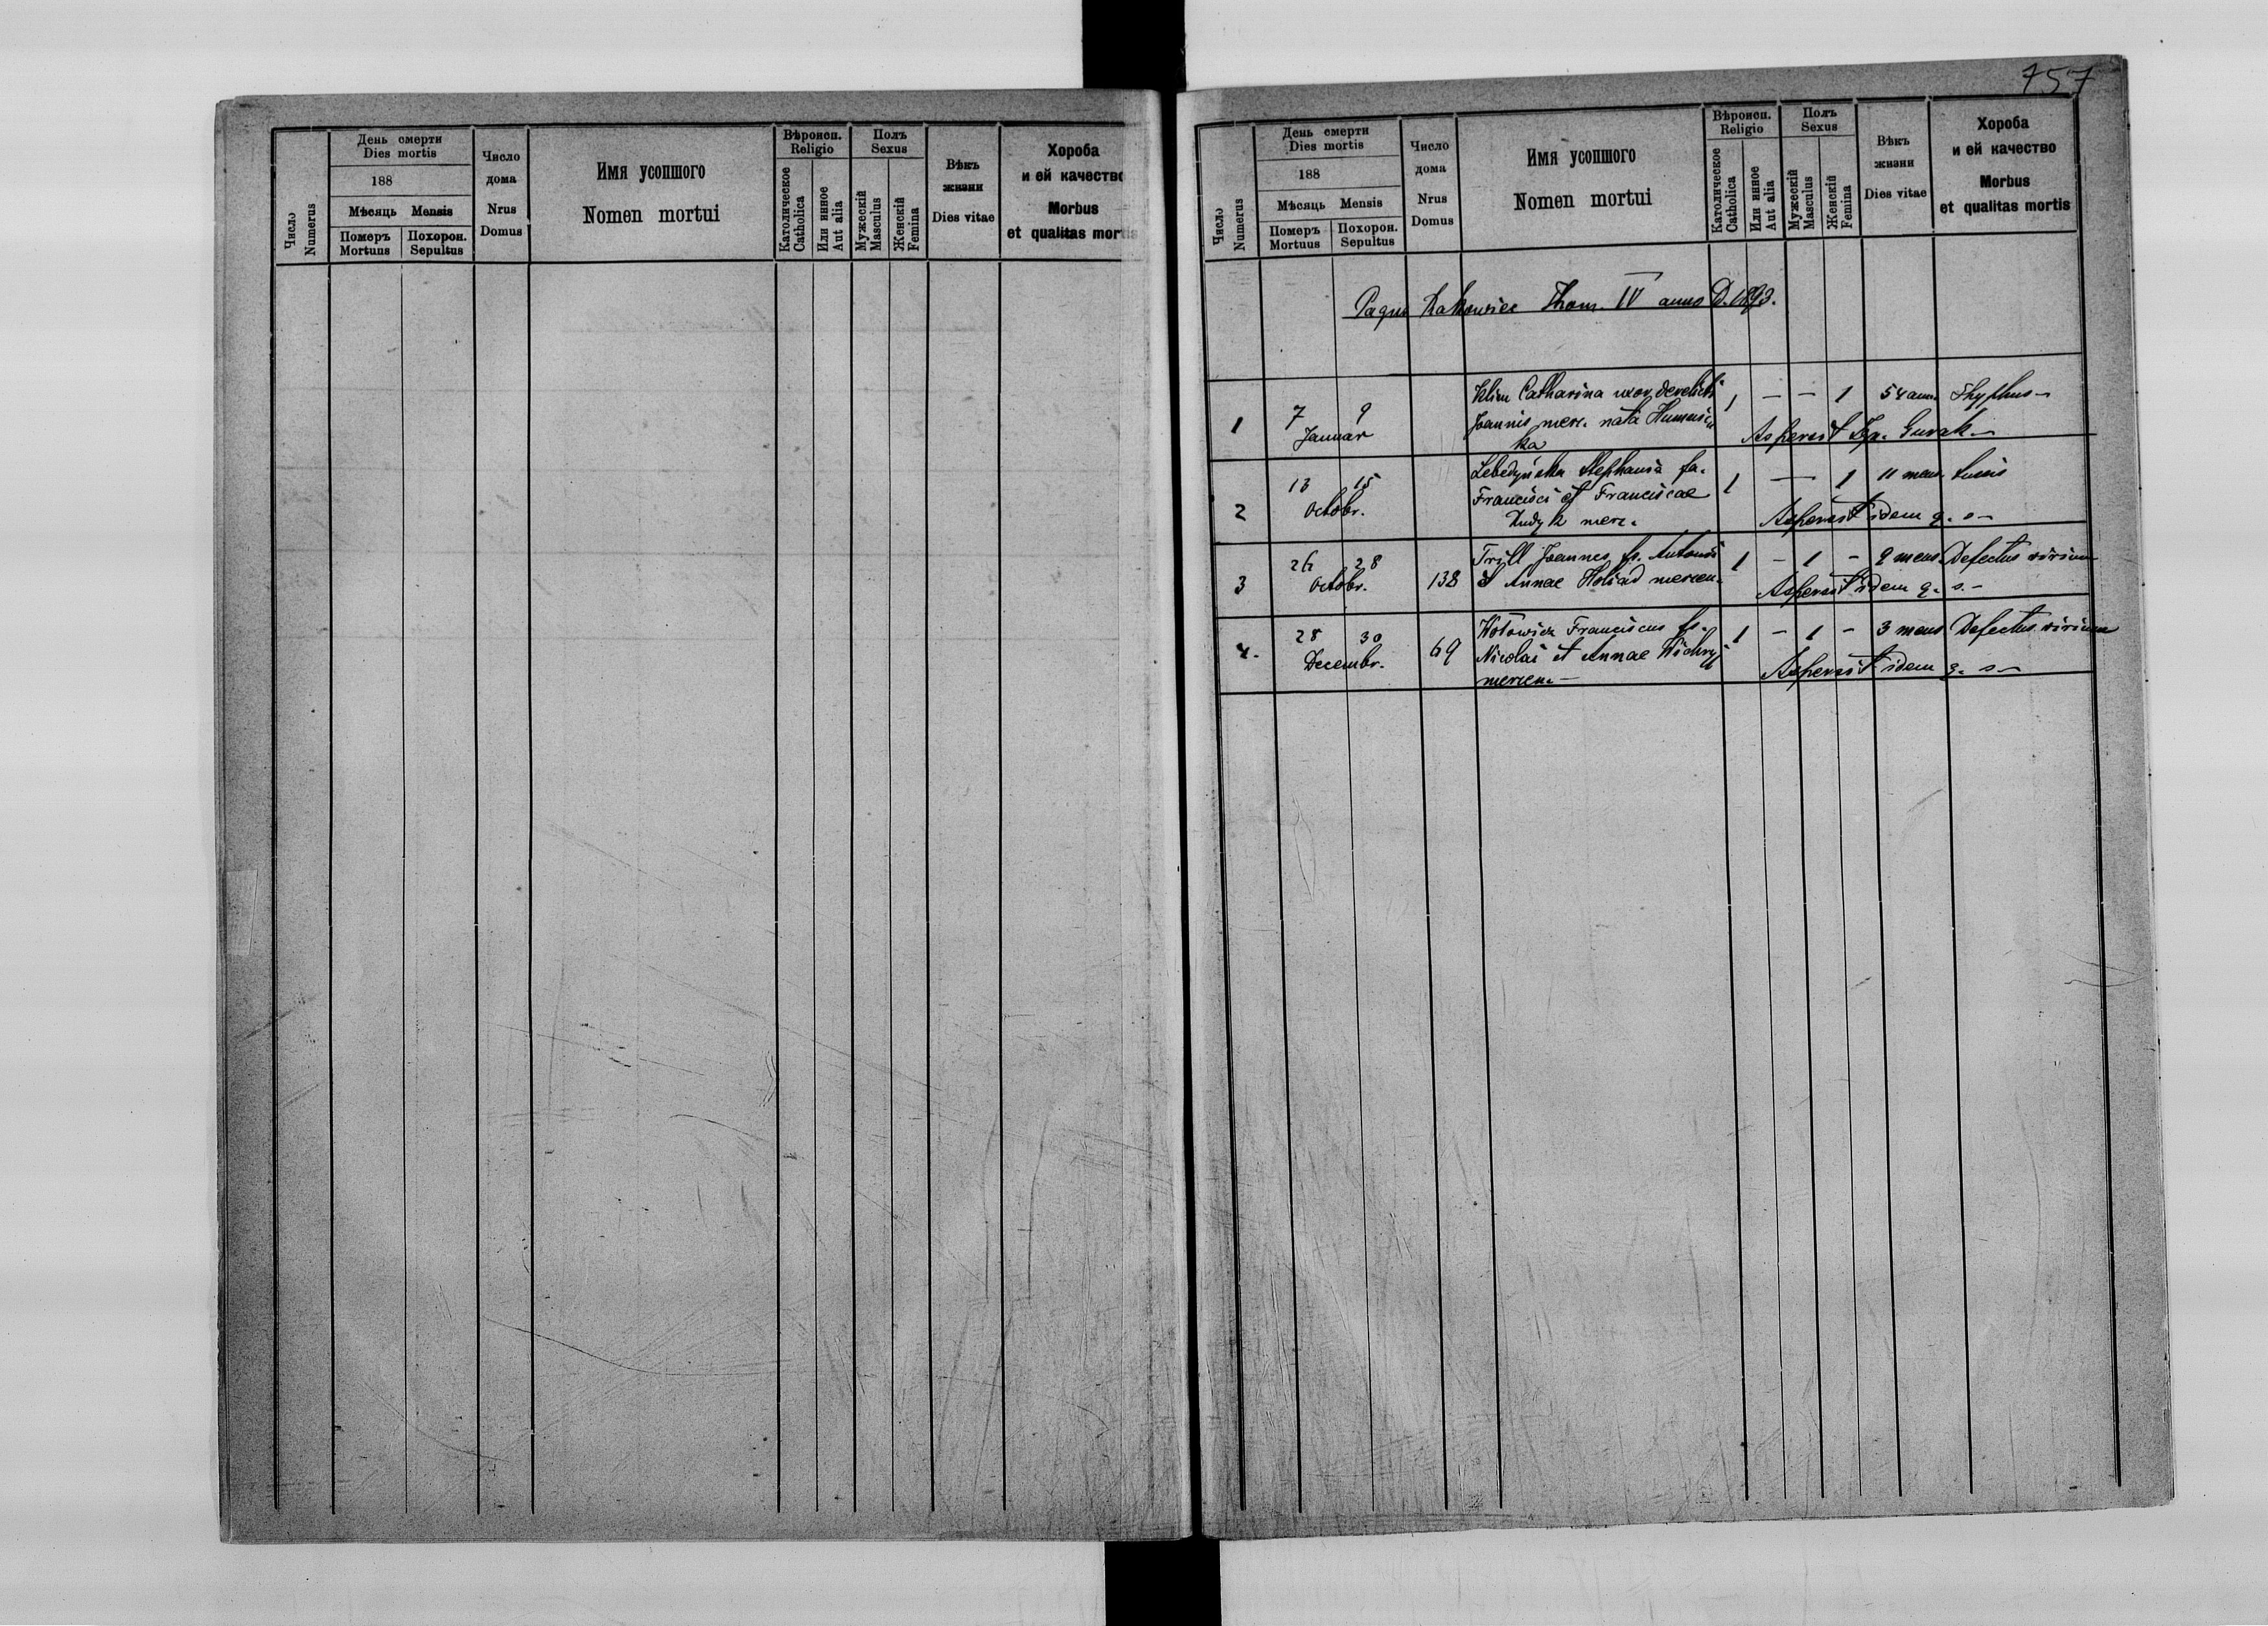 День смерти
Dies mortis
188
Мѣсяць Mensis
Померъ
Mortuus
Похорон.
Sepultus
Число
Numerus
Число
дома
Nrus
Domus
Имя усопшого
Nomen mortui
Вѣроисп.
Religio
Католическое
Catholica
Или инное
Aut alia
Полъ
Sexus
Мужескій
Masculus
Женскій
Femina
Вѣкъ
жизни
Dies vitae
Хороба
и ей качество
Morbus
et qualitas mortis
757
Число
Numerus
День смерти
Dies mortis
188
Мѣсяць Mensis
Померъ
Mortuus
Похорон.
Sepultus
Число
дома
Nrus
Domus
Имя усопшого
Nomen mortui
Вѣроисп.
Religio
Католическое
Catholica
Или инное
Aut alia
Полъ
Sexus
Мужескій
Masculus
Женскій
Femina
Вѣкъ
жизни
Dies vitae
Хороба
и ей качество
Morbus
et qualitas mortis
Pagus Rakowiec Thom. IV anno D. 1893.
1 7 9 Klim Catharina uxor derelicti 1 — — 1 54 ann. Thyphus —
Januar Joannis merc. nata Aspersit Gurak —
ka
2 13 15 Lebedyńska Stephania fa. 1 — 1 11 mens.
Octobr. Francisci et Franciscae
Dudyk merc. Aspersit idem q. s —
3 26 28 138 Trill Joannes fs. Antonii 1 - 1 - 9 mens. Defectus virium
Octobr. et Annae Holiad mercen. Aspersit idem q. s. —
4. 28 30 69 Wołowicz Franciscus fs. 1 - 1 - 3 mens Defectus virium
Decembr. Nicolai et Annae Wichryj
mercen. — Aspersit idem q. s —